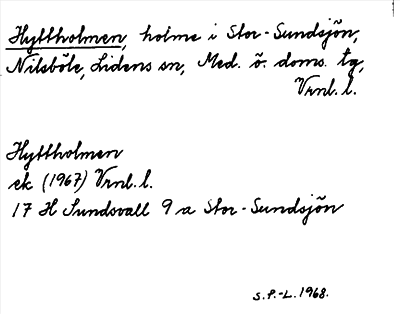 Hyttholmen, holme i Stor-Sundsjön,
Nilsböle, Lidens sn, Med. ö. doms. tg,
Vrnl. l.
Hyttholmen
ek (1967) Vrnl. l.
17 H Sundsvall 9 a Stor-Sundsjön
S.P.-L. 1968.